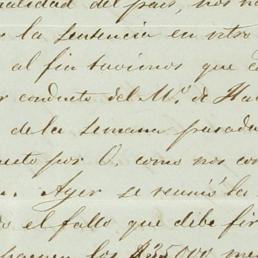 alidad del país, nos h
r la sentencia en otro
al fin tuvimos que c
r conducto del M.º de Ha
de la semana pasada
uesto por O. como nos co
Ayer se reunió la
o el fallo que debe fir
paguen los $35,000 me